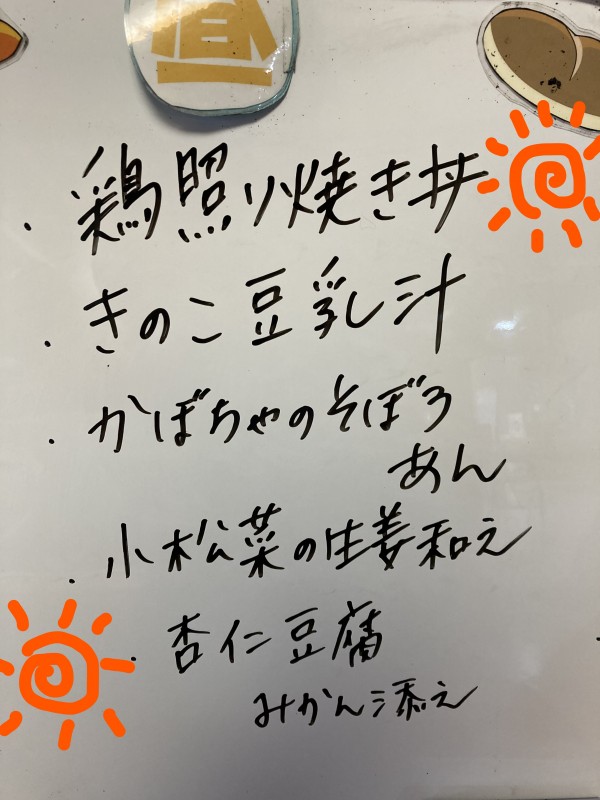 昼
・鶏照り焼き丼
・きのこ豆乳汁
・かぼちゃのそぼろ
あん
・小松菜の生姜和え
・杏仁豆腐
みかん添え